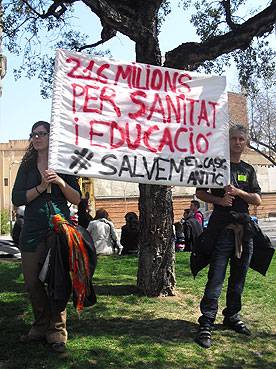 216 MILIONS
PER SANITAT
i EDUCACIÓ
# SALVEM EL CASC
ANTIC